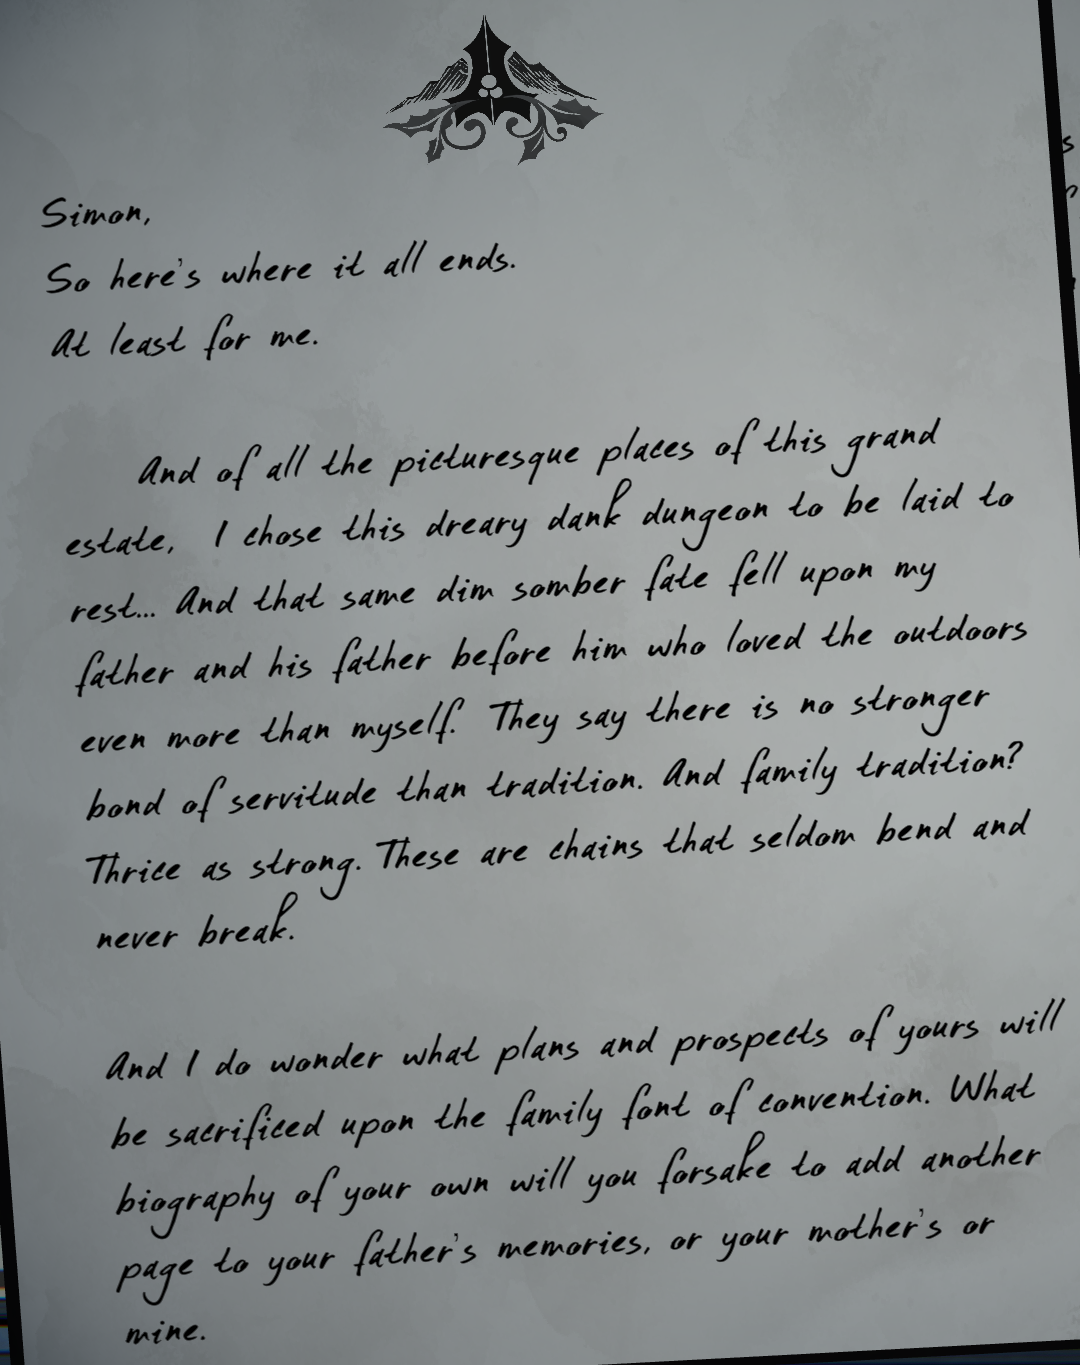 Simon,
So here's where it all ends.
At least for me.
And of all the picturesque places of this grand
estate, I chose this dreary dank dungeon to be laid to
rest... And that same dim somber fate fell upon my
father and his father before him who loved the outdoors
even more than myself. They say there is no stronger
bond of servitude than tradition. And family tradition?
Thrice as strong. These are chains that seldom bend and
never break.
And I do wonder what plans and prospects of yours will
be sacrificed upon the family font of convention. What
biography of your own will you forsake to add another
page to your father's memories, or your mother's or
mine.